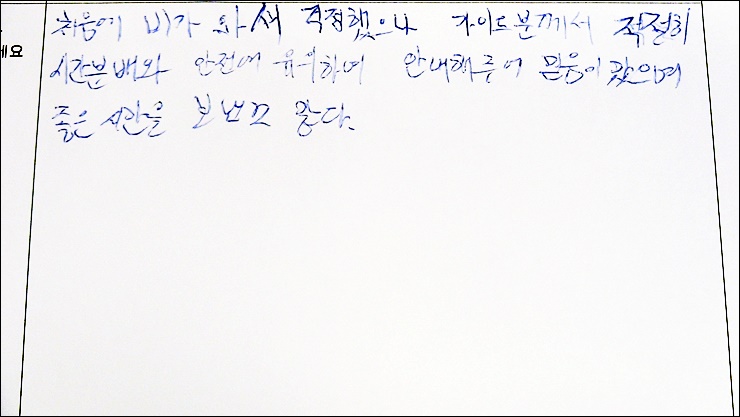 처음에 비가 와서 걱정했으나 가이드분께서 적절히
세요
시간분배와 안전에 유의하며 안내해주어 믿음이 갔으며
좋은 시간을 보내고 갑니다.